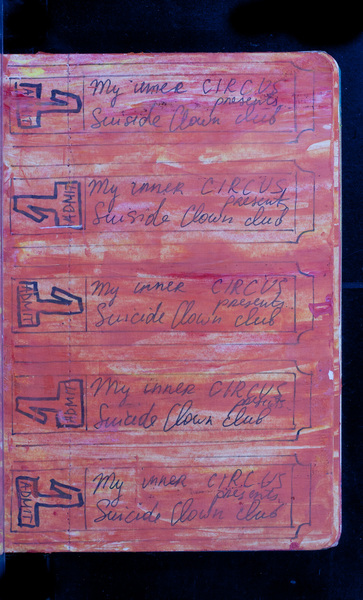 ADMIT 1
My inner CIRCUS
presents
Suiside Clown club
ADMIT 1
My inner CIRCUS
present
Suiside Clown club
ADMIT 1
My inner CIRCUS
presents
Suicide Clown club
ADMIT 1
My inner CIRCUS
Suicide Clown Club
ADMIT 1
My inner CIRCUS
presents
Suicide Clown club